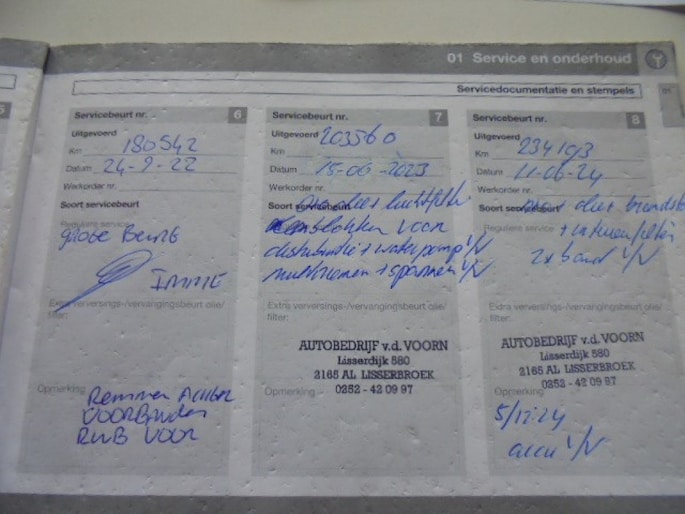 01 Service en onderhoud
Servicedocumentatie en stempels
01
5
Servicebeurt nr. 6
Uitgevoerd
Km 180542
Datum 24-9-22
Werkorder nr.
Soort servicebeurt
Reguliere service
grote Beurt
Extra verversings-/vervangingsbeurt olie/
filter:
Opmerking
Remmen Achter
VOORBanden
RuB VOOR
Servicebeurt nr. 7
Uitgevoerd
Km 203560
Datum 15-06-2023
Werkorder nr.
Soort servicebeurt
luchtfilter
blokken voor
distributie + waterpomp V/N
multiriemen + spanner V/N
Extra verversings-/vervangingsbeurt olie/
filter:
AUTOBEDRIJF v.d. VOORN
Lisserdijk 580
2165 AL LISSERBROEK
0252 - 42 09 97
Opmerking
Servicebeurt nr. 8
Uitgevoerd
Km 234193
Datum 11-06-24
Werkorder nr.
Soort servicebeurt
Reguliere service
+ interieurfilter
2x band V/N
Extra verversings-/vervangingsbeurt olie/
filter:
AUTOBEDRIJF v.d. VOORN
Lisserdijk 580
2165 AL LISSERBROEK
0252 - 42 09 97
Opmerking
5/12-24
accu V/N